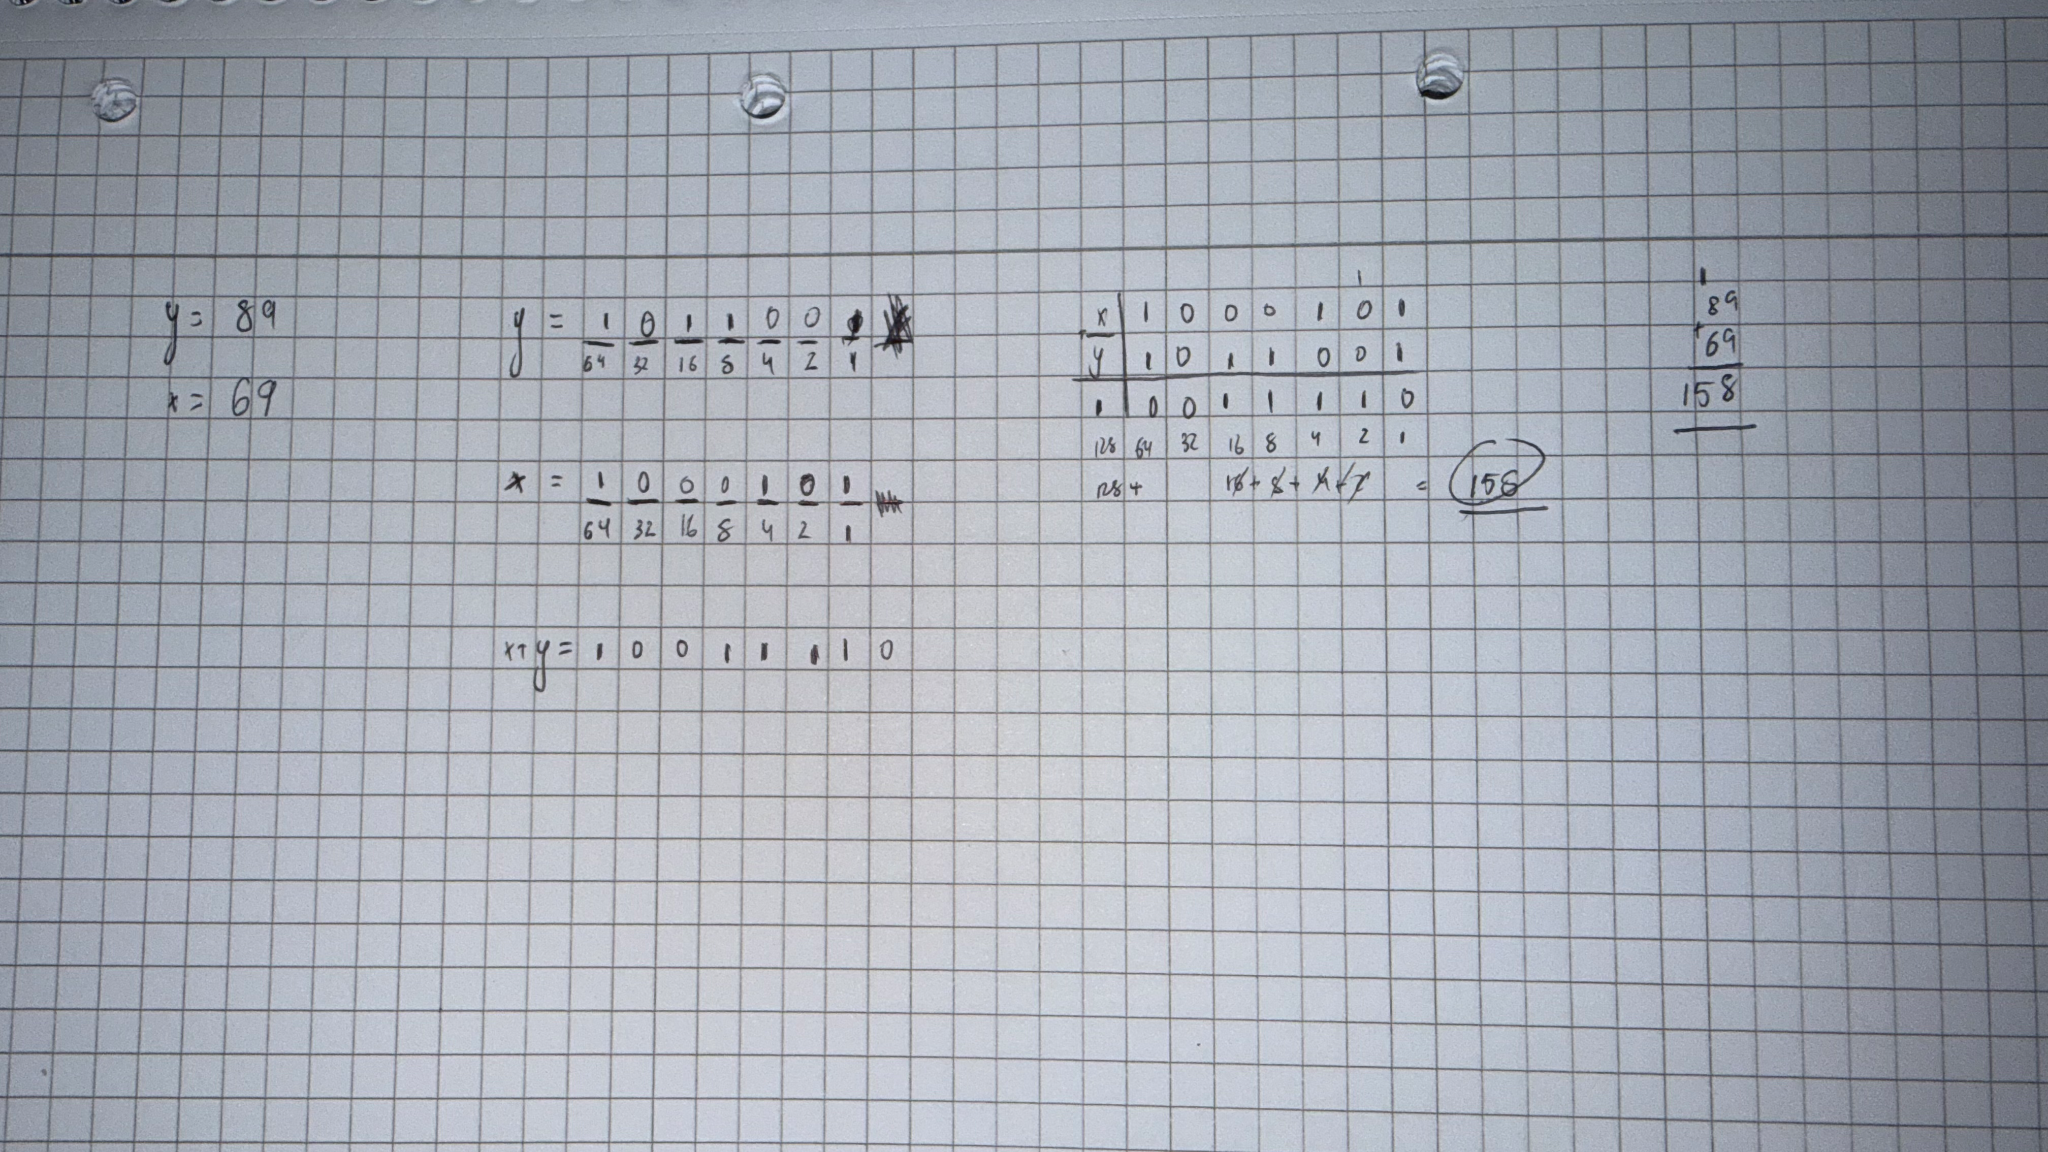 y = 89
x = 69
y = 1 0 1 1 0 0 1
64 32 16 8 4 2 1
x = 1 0 0 0 1 0 1
64 32 16 8 4 2 1
x+y = 1 0 0 1 1 1 1 0
1
x 1 0 0 0 1 0 1
+
y 1 0 1 1 0 0 1
1 0 0 1 1 1 1 0
128 64 32 16 8 4 2 1
128 + 16 + 8 + 4 + 2 = 158
1
89
+ 69
158